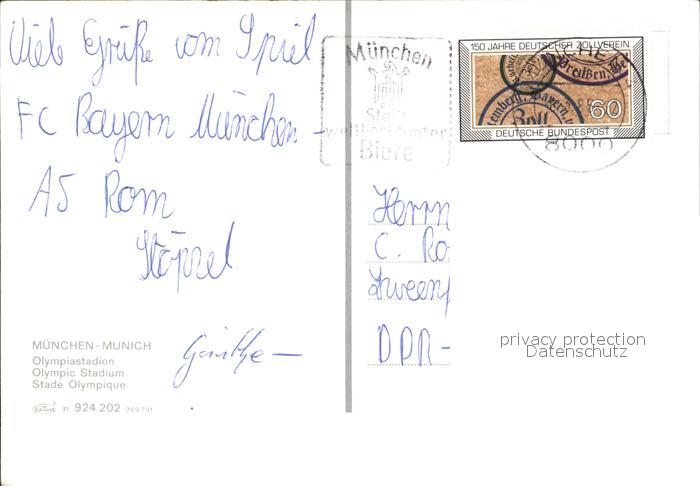 Viele Grüße vom Spiel
FC Bayern München -
AS Rom
Stöpsel
Günther
MÜNCHEN - MUNICH
Olympiastadion
Olympic Stadium
Stade Olympique
Krüger 31. 924.202 269791
München
Stadt
weltberühmter
Biere
150 JAHRE DEUTSCHER ZOLLVEREIN
Preußen,
Bayern,
60
DEUTSCHE BUNDESPOST
8000
Herrn
C. Ro
DDR -
privacy protection
Datenschutz